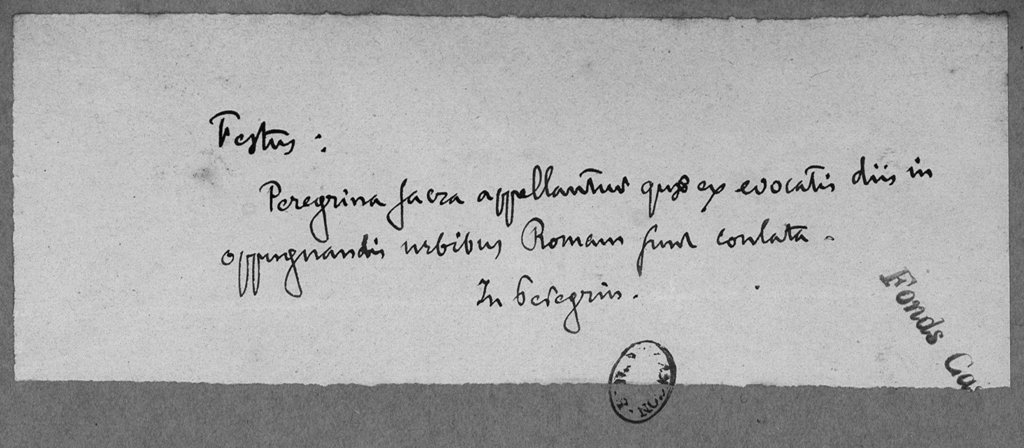 Festus :
Peregrina sacra appellantur quæ ex evocatis diis in
oppugnandis urbibus Romam sunt conlata .
In Peregrin .
Fonds